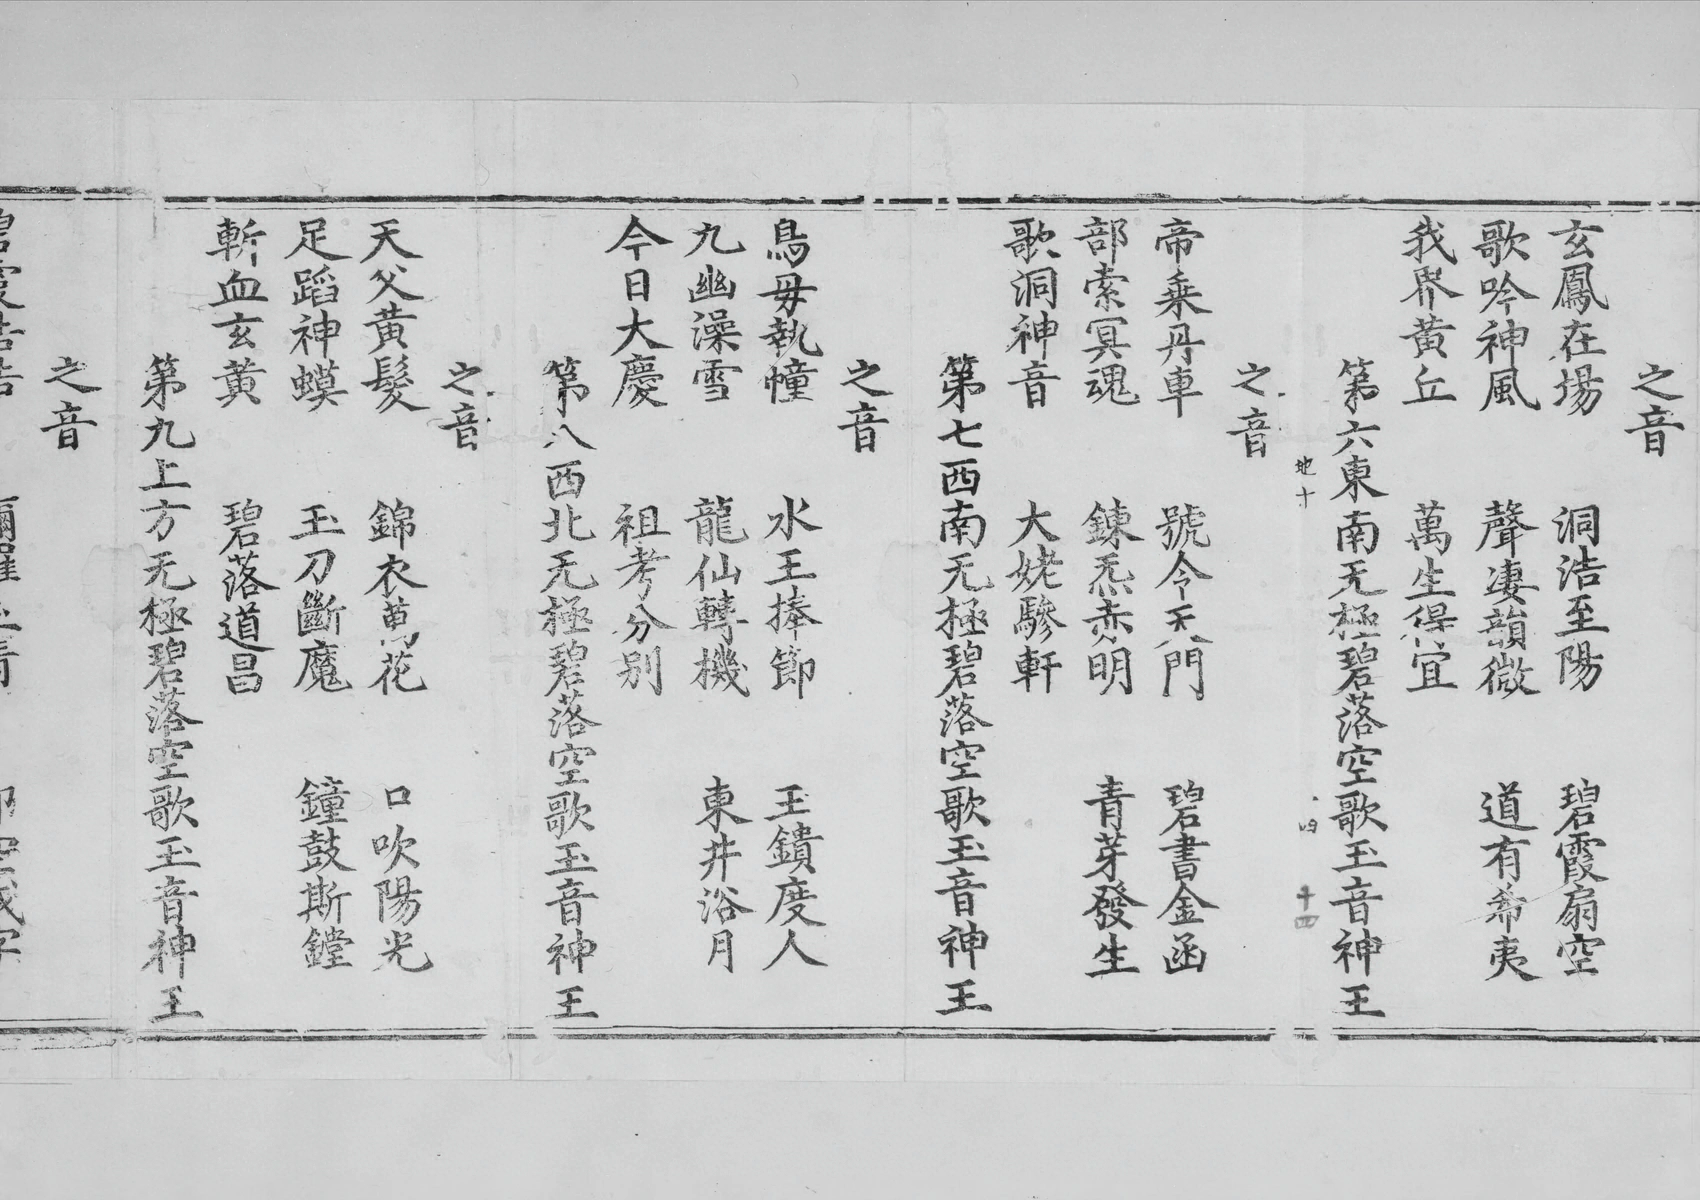 之音
玄鳳在場　洞浩至陽　碧霞扇空
歌吟神風　聲凄韻微　道有希夷
我界黄丘　萬生得宜
第六東南无極碧落空歌玉音神王
地十　四　十四
之音
帝乗丹車　號令天門　碧書金函
部索冥魂　鍊炁赤明　青芽發生
歌洞神音　大姥驂軒
第七西南无極碧落空歌玉音神王
之音
鳥毋執幢　水王捧節　玉鐀度人
九幽澡雪　龍仙轉機　東井浴月
今日大慶　祖考分别
第八西北无極碧落空歌玉音神王
之音
天父黄髮　錦衣萬花　口吹陽光
足蹈神蟆　玉刀斷魔　鐘鼓斯鏜
斬血玄黄　碧落道昌
第九上方无極碧落空歌玉音神王
之音